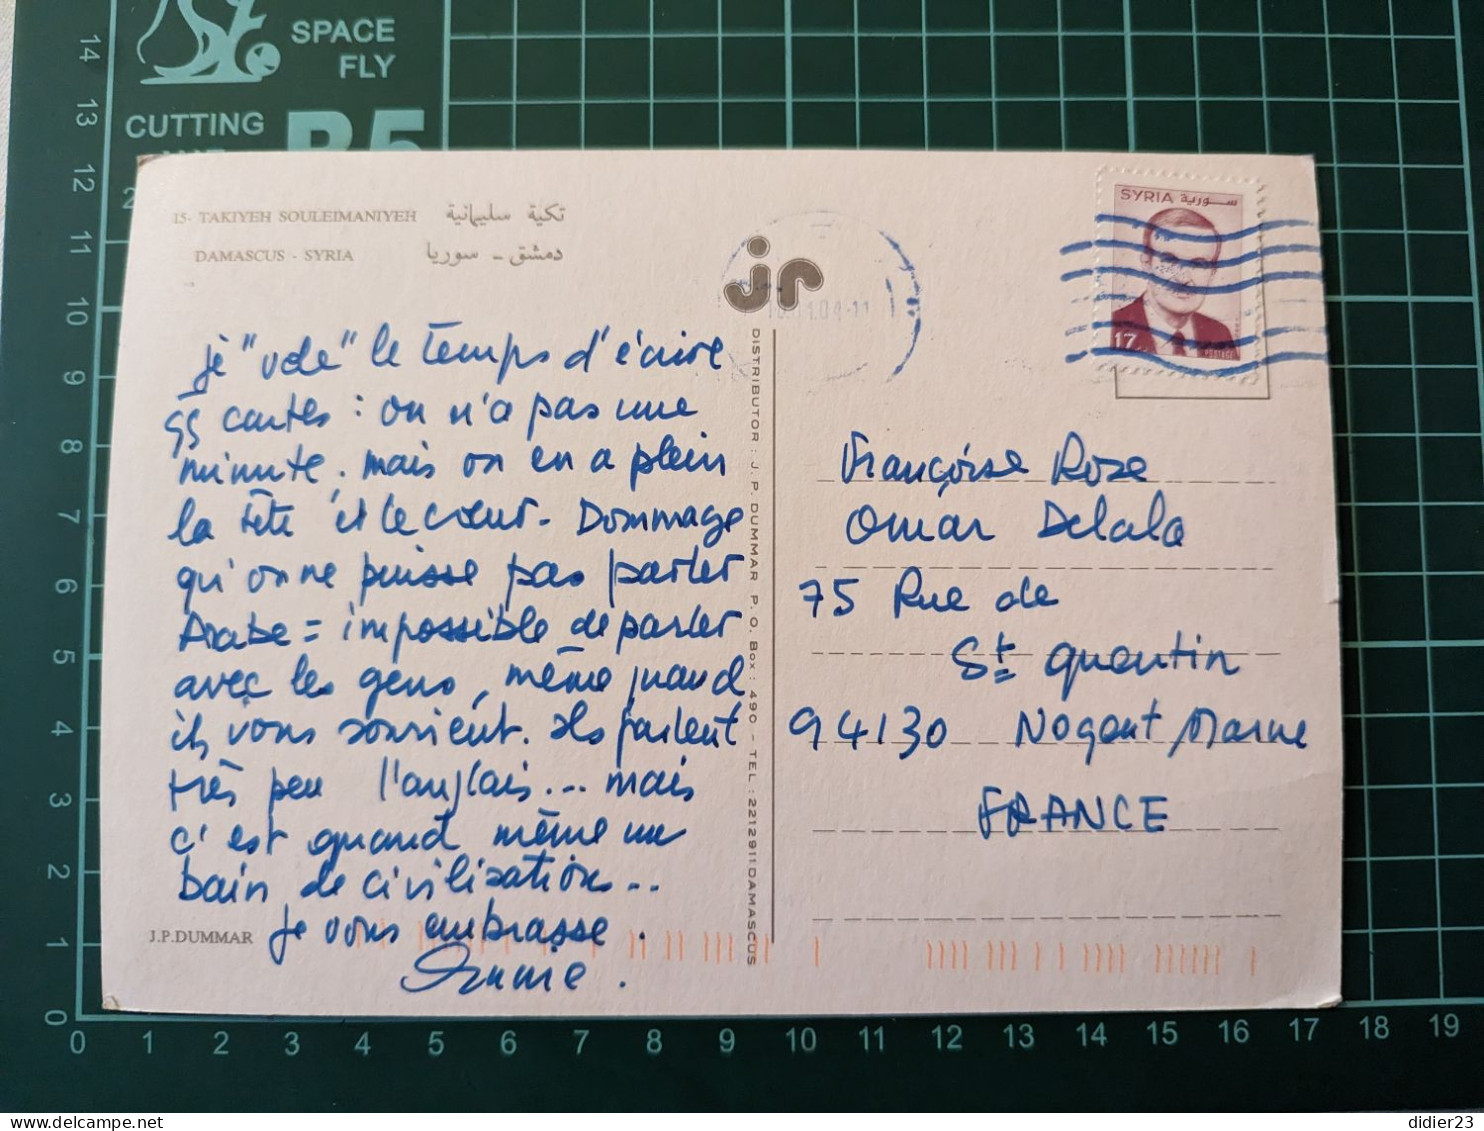 SPACE
FLY
CUTTING
B5
14
13
12
11
10
9
8
7
6
5
4
3
2
1
0
15- TAKIYEH SOULEIMANIYEH تكية سليمانية
DAMASCUS - SYRIA دمشق - سوريا
jr
SYRIA سورية
17
POSTAGE
je "vole" le temps d'écrire
55 cartes : on n'a pas une
minute. mais on en a plein
la tête et le cœur. Dommage
qu'on ne puisse pas parler
Arabe = impossible de parler
avec les gens, même quand
ils vous sourient. Ils parlent
très peu l'anglais... mais
c'est quand même un
bain de civilisation...
Je vous embrasse.
J.P.DUMMAR
DISTRIBUTOR : J. P. DUMMAR P. O. Box : 490 - TEL : 2212911 DAMASCUS
Françoise Rose
Omar Delala
75 Rue de
St Quentin
94130 Nogent Marne
FRANCE
0 1 2 3 4 5 6 7 8 9 10 11 12 13 14 15 16 17 18 19
didier23